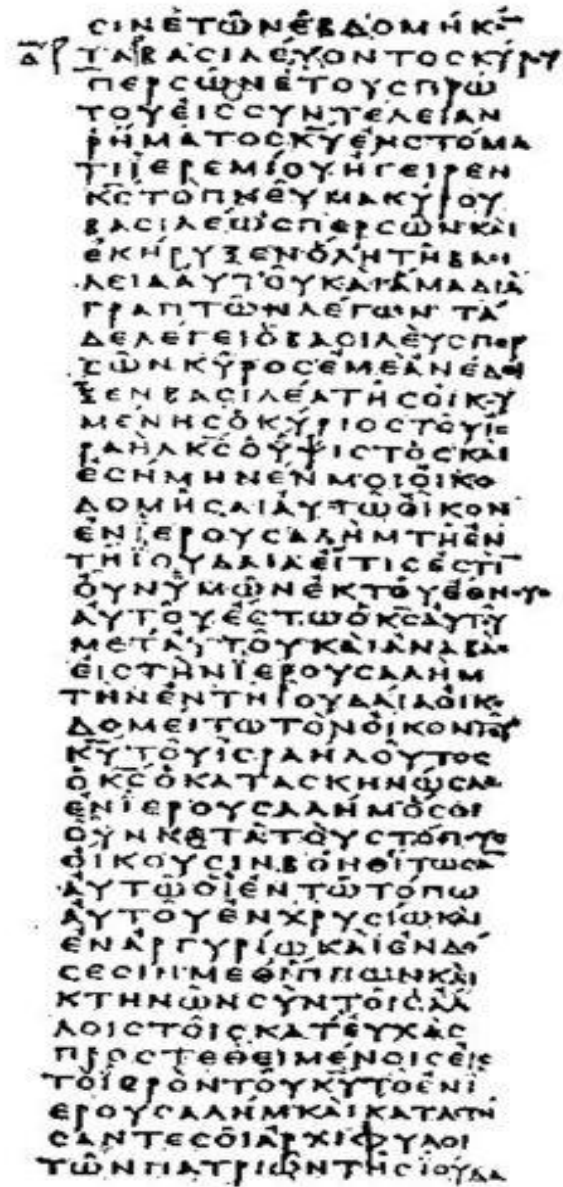 ΣΙΝΕΤΩΝΕΒΔΟΜΗΚΟΝ
ΤΑΒΑΣΙΛΕΥΟΝΤΟΣΚΥΡΟΥ
ΠΕΡΣΩΝΕΤΟΥΣΠΡΩ
ΤΟΥΕΙΣΣΥΝΤΕΛΕΙΑΝ
ΡΗΜΑΤΟΣΚΥΕΝΣΤΟΜΑ
ΤΙΙΕΡΕΜΙΟΥΗΓΕΙΡΕΝ
ΚΣΤΟΠΝΕΥΜΑΚΥΡΟΥ
ΒΑΣΙΛΕΩΣΠΕΡΣΩΝΚΑΙ
ΕΚΗΡΥΞΕΝΟΛΗΤΗΒΑΣΙ
ΛΕΙΑΑΥΤΟΥΚΑΙΑΜΑΔΙΑ
ΓΡΑΠΤΩΝΛΕΓΩΝΤΑ
ΔΕΛΕΓΕΙΟΒΑΣΙΛΕΥΣΠΕΡ
ΣΩΝΚΥΡΟΣΕΜΕΑΝΕΔΕΙ
ΞΕΝΒΑΣΙΛΕΑΤΗΣΟΙΚΟΥ
ΜΕΝΗΣΟΚΥΡΙΟΣΤΟΥΙΣ
ΡΑΗΛΚΣΟΥΨΙΣΤΟΣΚΑΙ
ΕΣΗΜΗΝΕΝΜΟΙΟΙΚΟ
ΔΟΜΗΣΑΙΑΥΤΩΟΙΚΟΝ
ΕΝΙΕΡΟΥΣΑΛΗΜΤΗΕΝ
ΤΗΙΟΥΔΑΙΑΕΙΤΙΣΕΣΤΙΝ
ΟΥΝΥΜΩΝΕΚΤΟΥΕΘΝΟΥΣ
ΑΥΤΟΥΕΣΤΩΟΚΣΑΥΤΟΥ
ΜΕΤΑΥΤΟΥΚΑΙΑΝΑΒΑΣ
ΕΙΣΤΗΝΙΕΡΟΥΣΑΛΗΜ
ΤΗΝΕΝΤΗΙΟΥΔΑΙΑΟΙΚΟ
ΔΟΜΕΙΤΩΤΟΝΟΙΚΟΝΤΟΥ
ΚΥΤΟΥΙΣΡΑΗΛΟΥΤΟΣ
ΟΚΣΟΚΑΤΑΣΚΗΝΩΣΑΣ
ΕΝΙΕΡΟΥΣΑΛΗΜΟΣΟΙ
ΟΥΝΚΑΤΑΤΟΥΣΤΟΠΟΥΣ
ΟΙΚΟΥΣΙΝΒΟΗΘΙΤΩΣΑΝ
ΑΥΤΩΟΙΕΝΤΩΤΟΠΩ
ΑΥΤΟΥΕΝΧΡΥΣΙΩΚΑΙ
ΕΝΑΡΓΥΡΙΩΚΑΙΕΝΔΟ
ΣΕΣΙΝΜΕΘΙΠΠΩΝΚΑΙ
ΚΤΗΝΩΝΣΥΝΤΟΙΣΑΛ
ΛΟΙΣΤΟΙΣΚΑΤΕΥΧΑΣ
ΠΡΟΣΤΕΘΕΙΜΕΝΟΙΣΕΙΣ
ΤΟΙΕΡΟΝΤΟΥΚΥΤΟΕΝΙ
ΕΡΟΥΣΑΛΗΜΚΑΙΚΑΤΑΣΤΗ
ΣΑΝΤΕΣΟΙΑΡΧΙΦΥΛΟΙ
ΤΩΝΠΑΤΡΙΩΝΤΗΣΙΟΥΔΑ